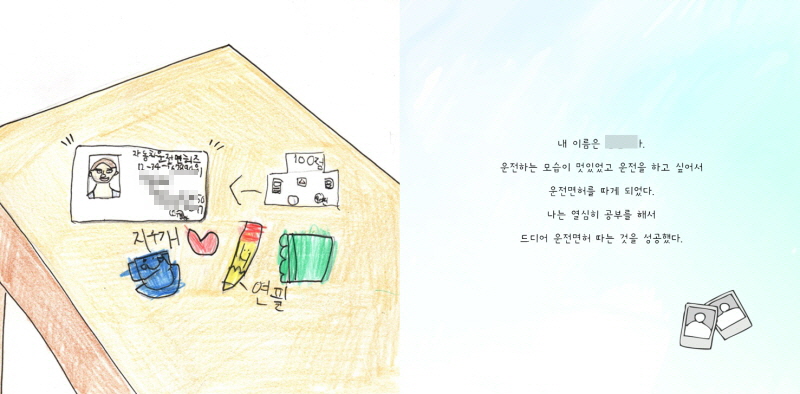 자동차운전면허증
100점
지우개
연필
내 이름은
운전하는 모습이 멋있었고 운전을 하고 싶어서
운전면허를 따게 되었다.
나는 열심히 공부를 해서
드디어 운전면허 따는 것을 성공했다.